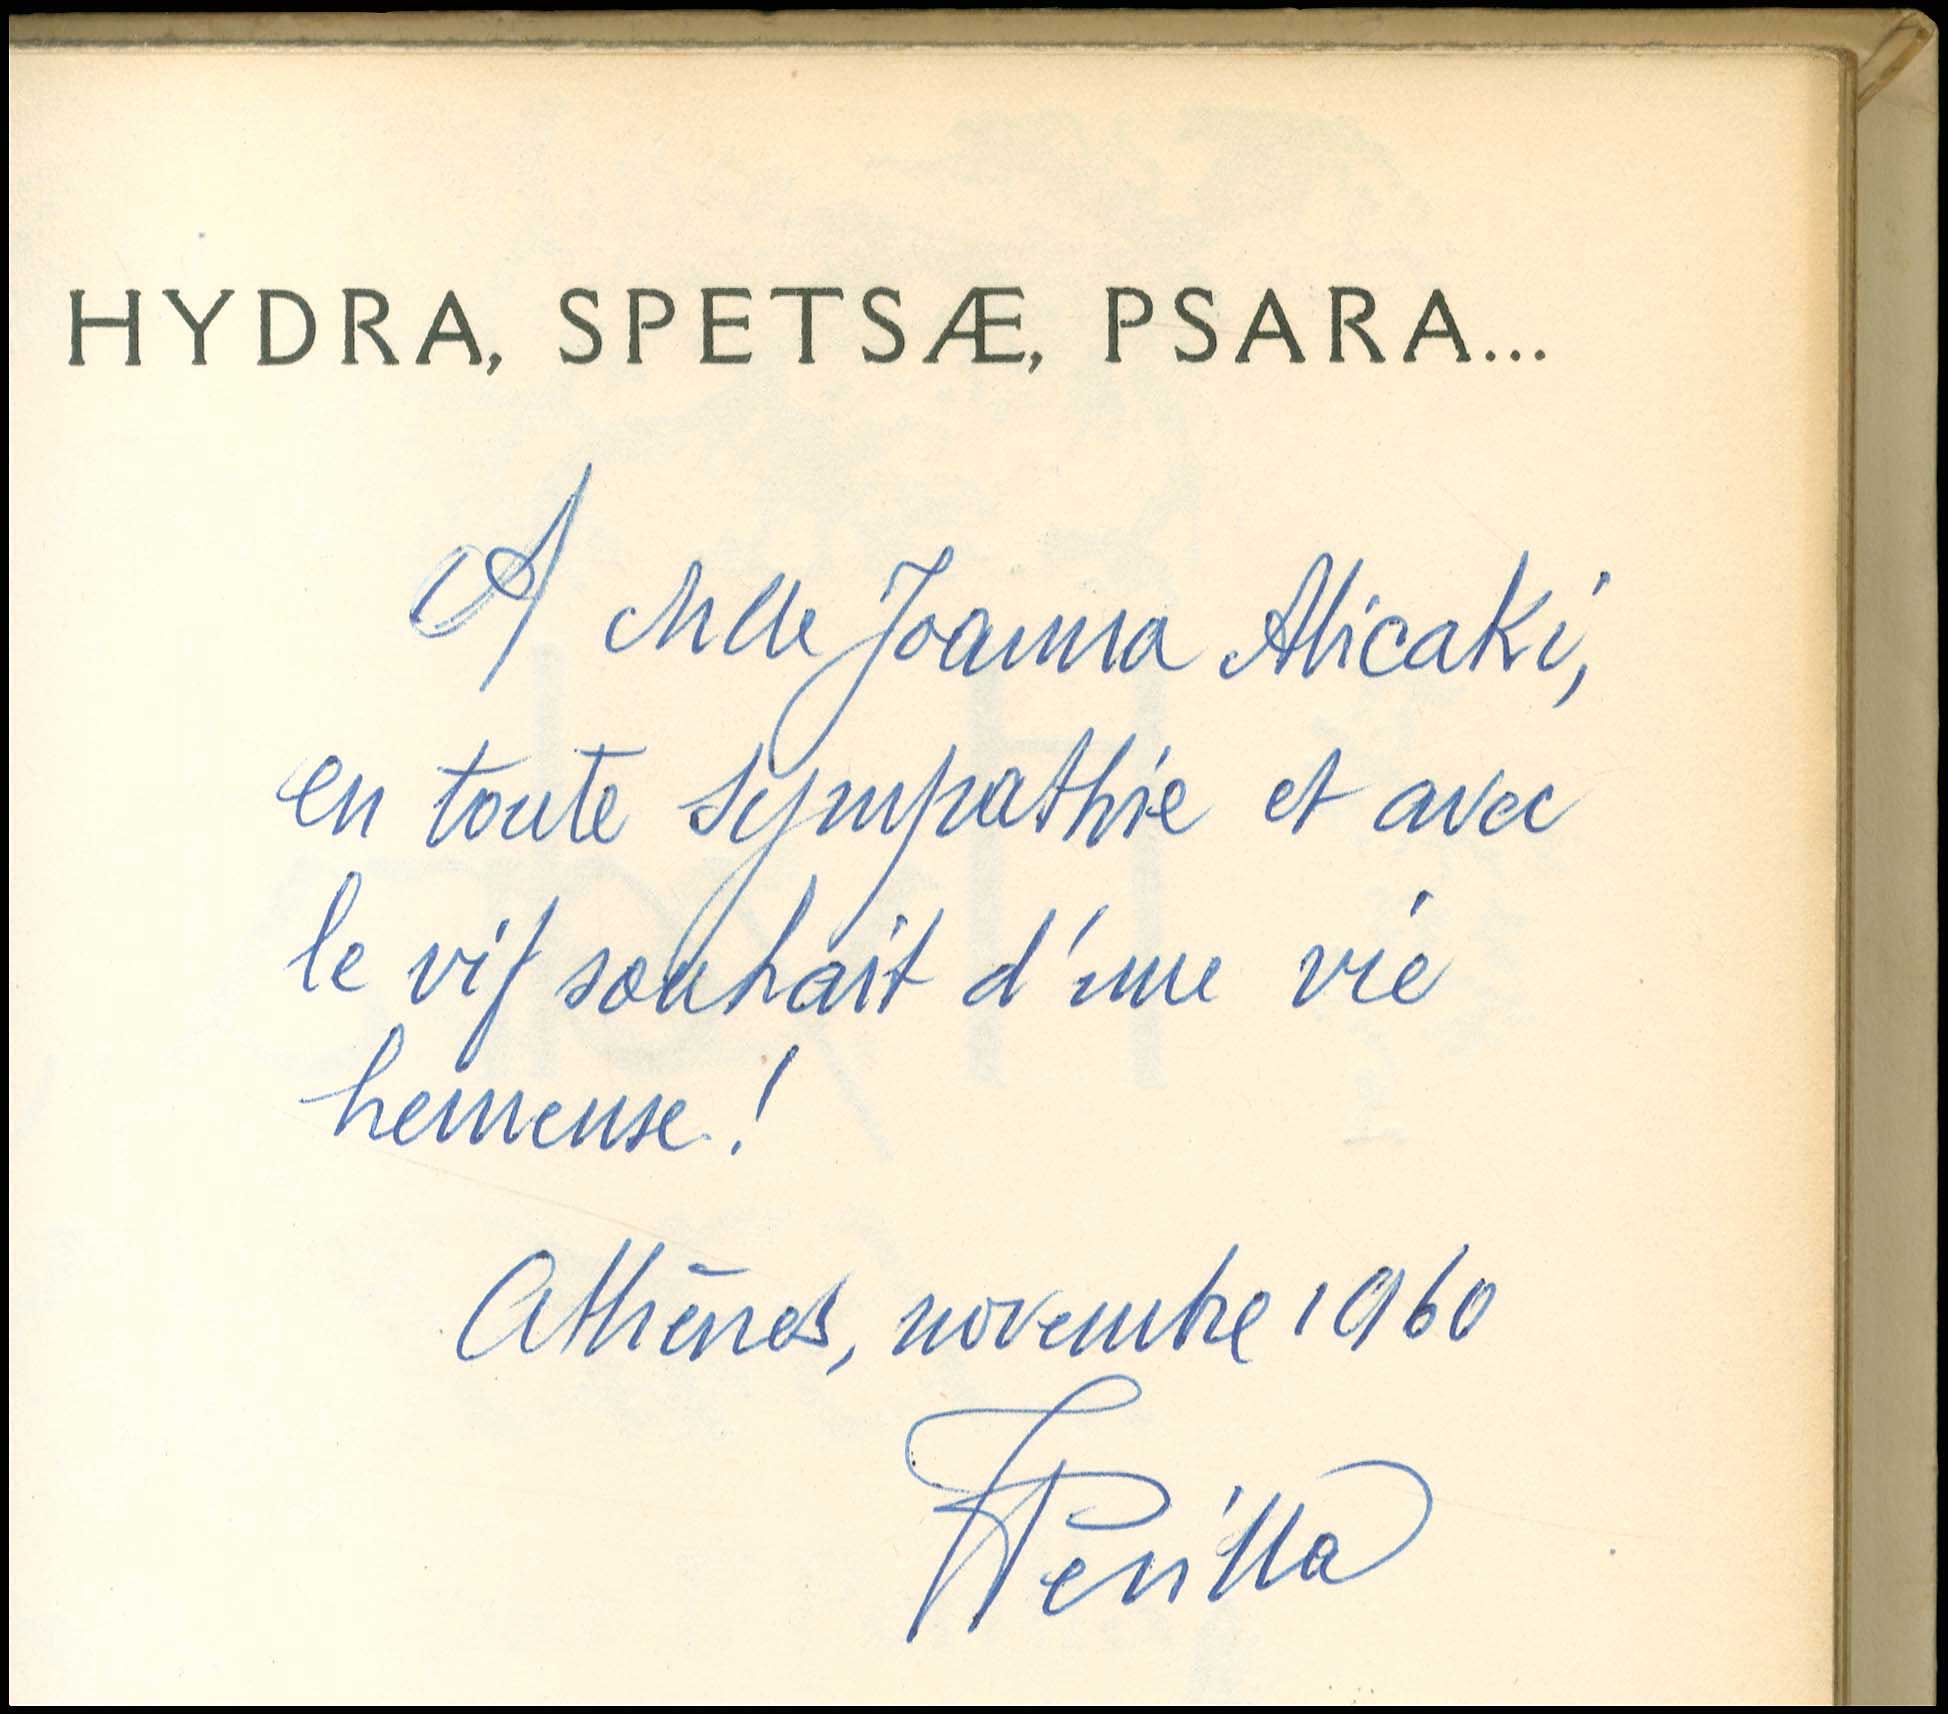 HYDRA, SPETSÆ, PSARA...
A Mlle Joanna Alicaki,
en toute sympathie et avec
le vif souhait d'une vie
heureuse!
Athènes, novembre 1960
Perilla